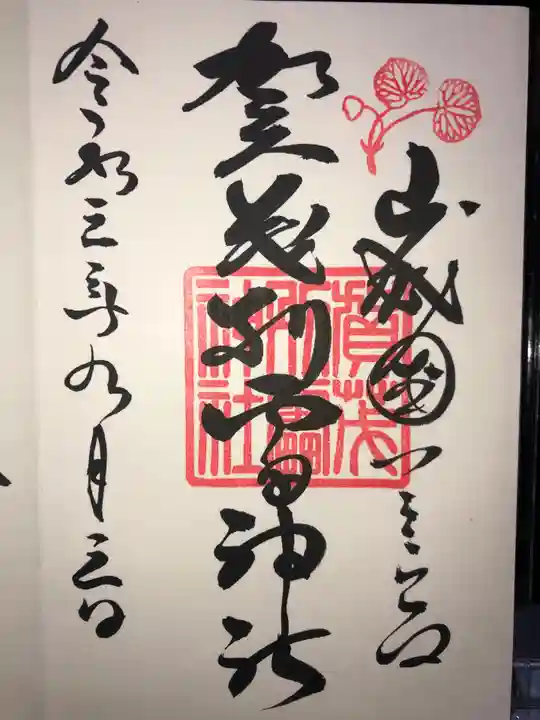 山城國一之宮
賀茂別雷神社
令和三年九月三日
賀茂
別雷
神社